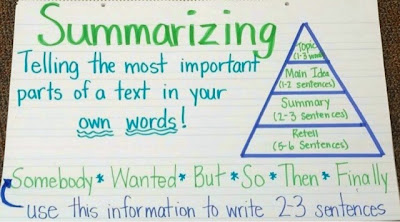 Summarizing
Telling the most important
parts of a text in your
own words!
Topic
(1-3 words)
Main Idea
(1-2 sentences)
Summary
(2-3 sentences)
Retell
(5-6 sentences)
Somebody * Wanted * But * So * Then * Finally
use this information to write 2-3 sentences